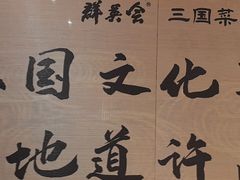 群英会® 三国菜
国文化
地道许